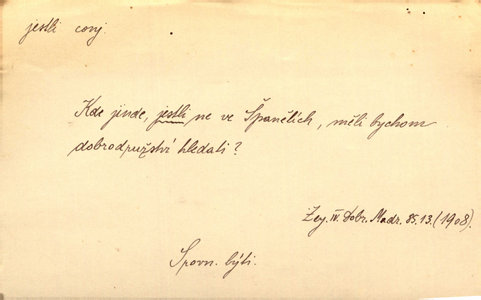 jestli conj.
Kde jinde, jestli ne ve Španělích, měli bychom
dobrodružství hledati?
Zey. IV. Dobr. Madr. 85.13. (1908).
Srovn. býti.